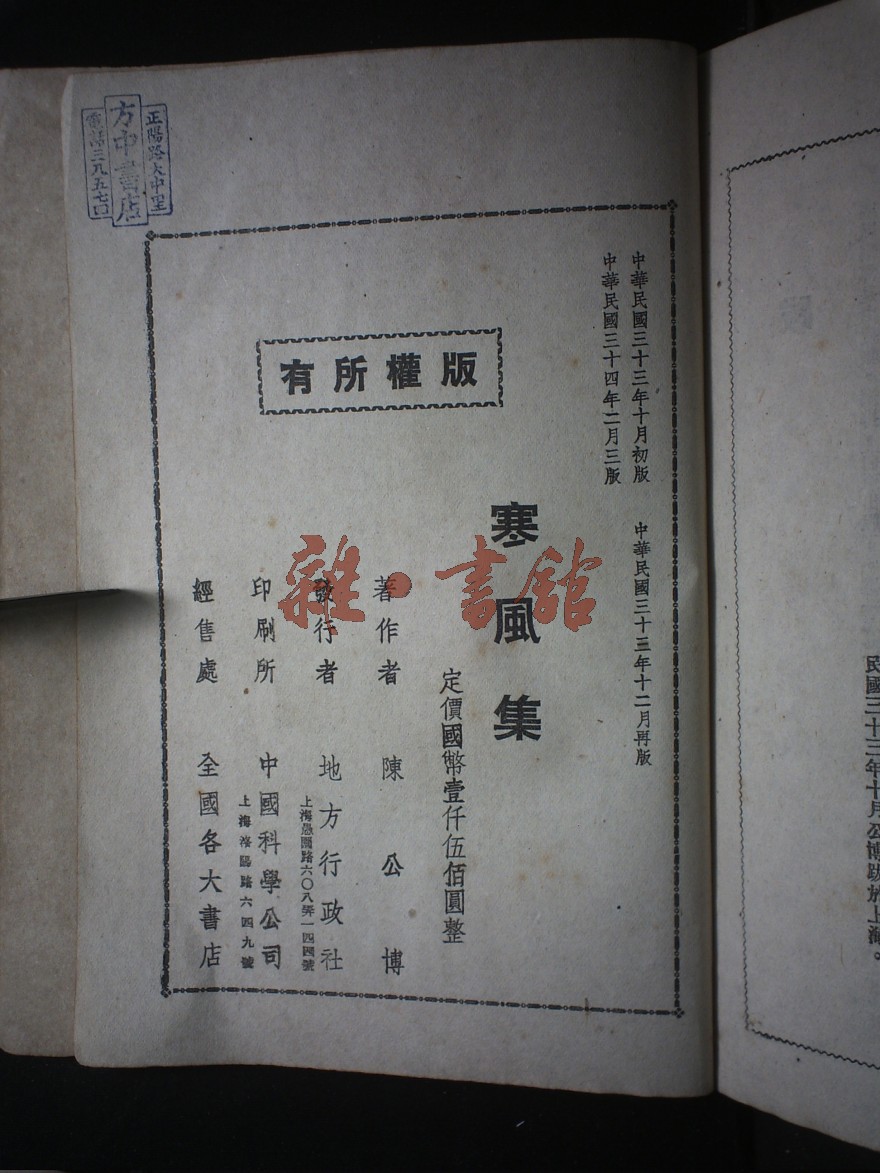 民國三十三年十月公博跋於上海。
中華民國三十三年十月初版 中華民國三十三年十二月再版
中華民國三十四年二月三版
版權所有
寒風集
定價國幣壹仟伍佰圓整
著作者 陳公博
發行者 地方行政社
上海愚園路六〇八弄一四四號
印刷所 中國科學公司
上海 路六四九號
經售處 全國各大書店
正陽路大中里
方中書店
電話三九五七〇
雜·書館